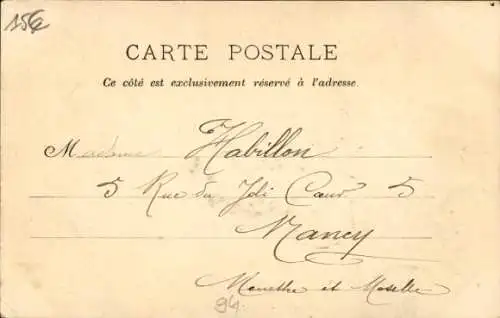 156
CARTE POSTALE
Ce côté est exclusivement réservé à l'adresse.
Madame Habillon
5 Rue du Joli Cœur 5
Nancy
Meurthe et Moselle
94